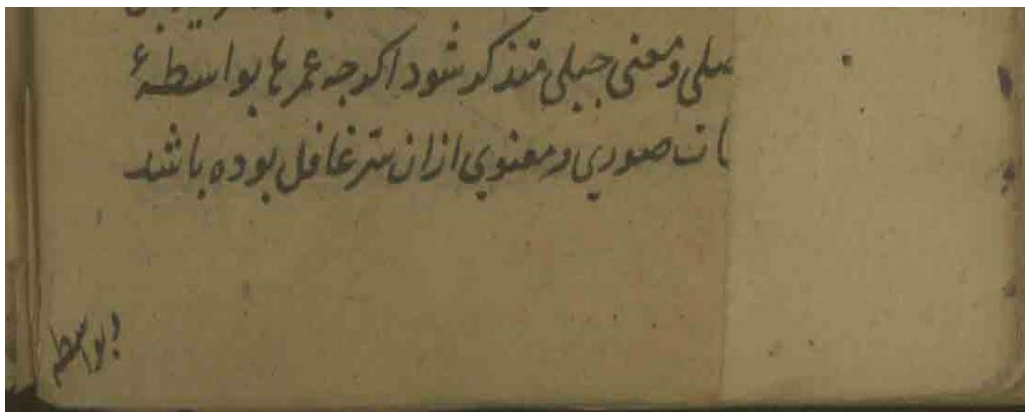 صلی و معنی جبلی متذکر شود اکرجه عمرها بواسطهٔ
ات صوری و معنوی از ان سر غافل بوده باشد
و بواسطه